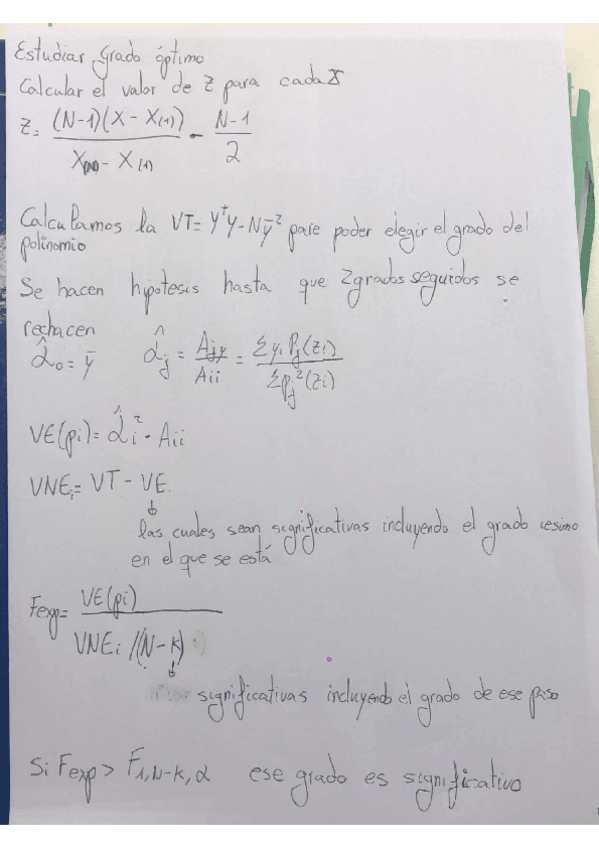 Estudiar grado óptimo
Calcular el valor de Z para cada X
Z = (N-1)(X - X(1)) / X(N) - X(1) - N-1 / 2
Calculamos la VT = Y^tY - Nȳ² para poder elegir el grado del
polinomio
Se hacen hipotesis hasta que 2 grados seguidos se
rechacen
α̂₀ = ȳ   α̂j = Ajy / Aii = Σyi Pj(zi) / ΣPj²(zi)
VE(pi) = α̂i² · Aii
VNEi = VT - VE
↓
las cuales sean significativas incluyendo el grado iesimo
en el que se está
Fexp = VE(pi) / VNEi /(N-k)
↓
significativas incluyendo el grado de ese paso
Si Fexp > F1,N-k,α ese grado es significativo